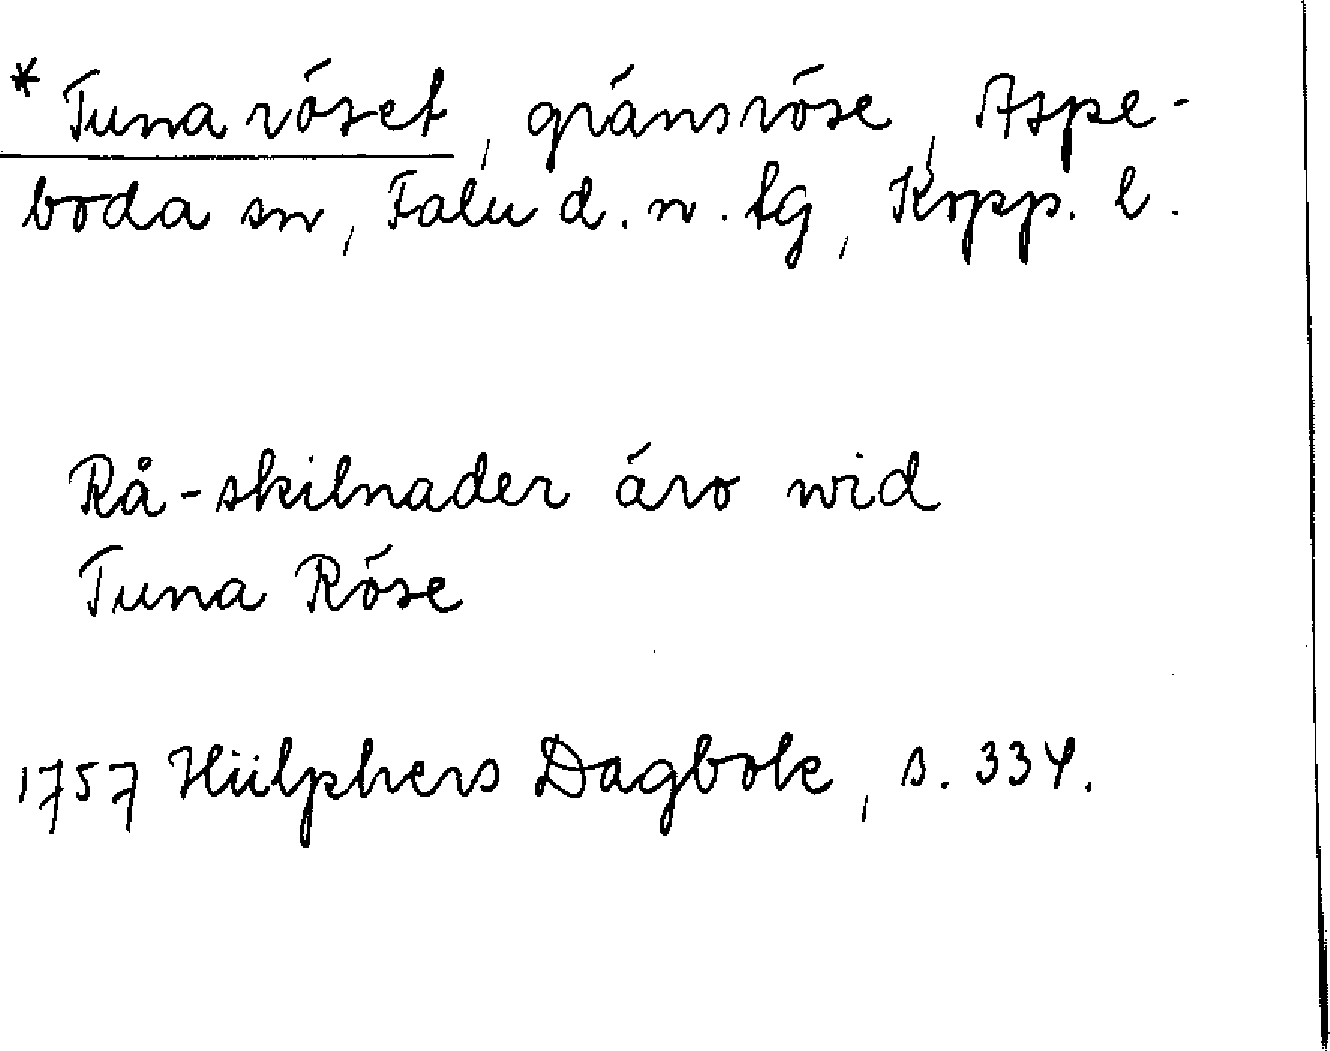 * Tuna röset, gränsröse, Aspe-
boda sn, Falu d. n. tg, Kopp. l.
Rå-skilnader äro wid
Tuna Röse
1757 Hülphers Dagbok, s. 334.